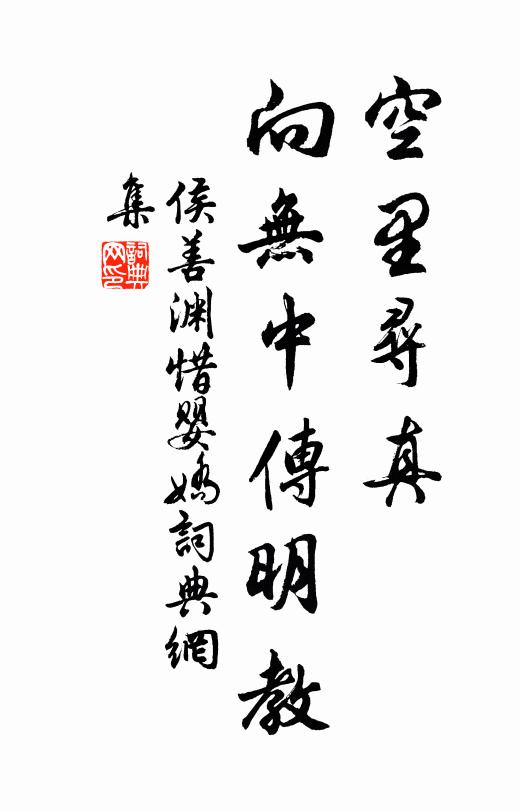 空里尋真
向無中傳明教
侯善渊惜嬰嬌詞典網
集
詞典網印